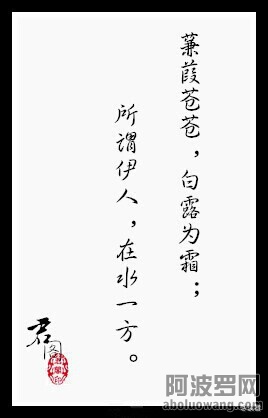 蒹葭苍苍，白露为霜；
所谓伊人，在水一方。
君
阿波罗网
aboluowang.com